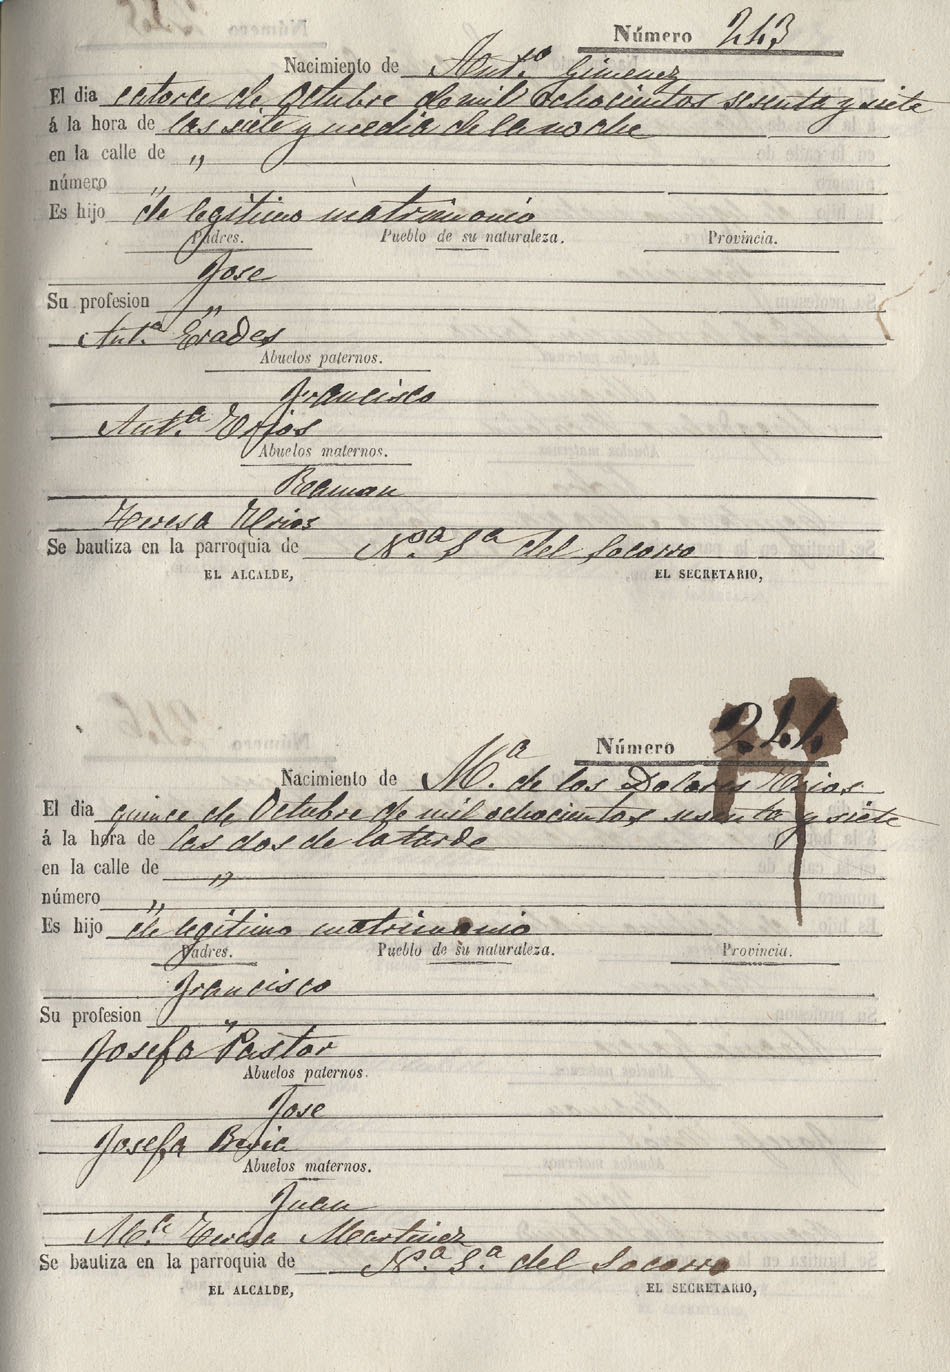 Número 243
Nacimiento de Ant.º Gimenez
El dia catorce de Octubre de mil ochocientos sesenta y siete
á la hora de las siete y media de la noche
en la calle de „
número „
Es hijo de legitimo matrimonio
Padres. Pueblo de su naturaleza. Provincia.
Jose
Su profesion „
Ant.ª Erades
Abuelos paternos.
Francisco
Ant.ª
Abuelos maternos.
Ramon
Teresa Urios
Se bautiza en la parroquia de N.ª S.ª del Socorro
EL ALCALDE, EL SECRETARIO,
Número 244
Nacimiento de M.ª de los Dolores Urios
El dia quince de Octubre de mil ochocientos sesenta y siete
á la hora de las dos de la tarde
en la calle de „
número „
Es hijo de legitimo matrimonio
Padres. Pueblo de su naturaleza. Provincia.
Francisco
Su profesion „
Josefa Pastor
Abuelos paternos.
Jose
Josefa
Abuelos maternos.
Juan
M.ª Teresa Martinez
Se bautiza en la parroquia de N.ª S.ª del Socorro
EL ALCALDE, EL SECRETARIO,